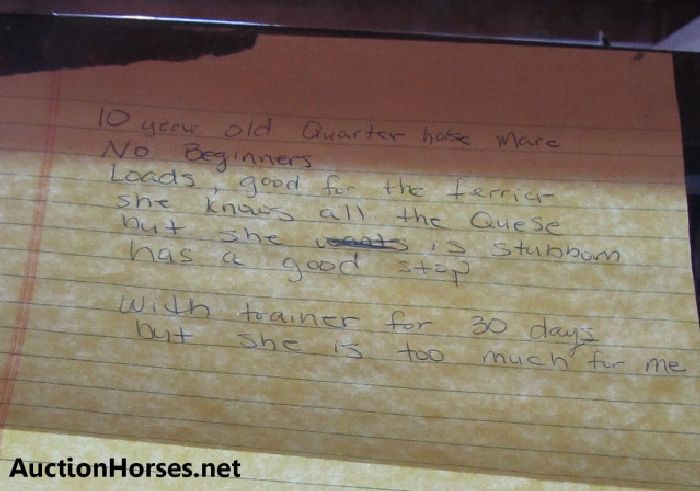 10 year old Quarter horse Mare
No Beginners
Loads, good for the ferrier
she knows all the Quese
but she is stubborn
has a good stop
with trainer for 30 days
but she is too much for me
AuctionHorses.net